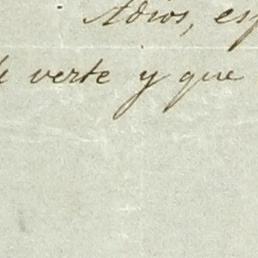 Adios, esp
de verte y que